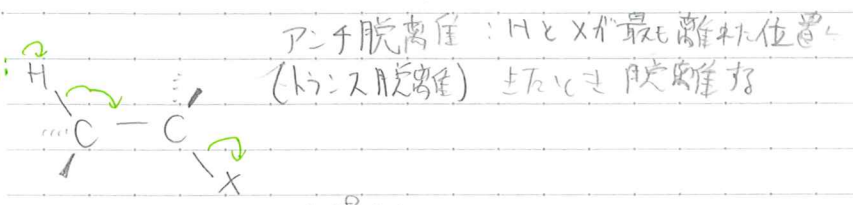 アンチ脱離 : HとXが最も離れた位置に
(トランス脱離) きたとき 脱離する
H
C — C
X